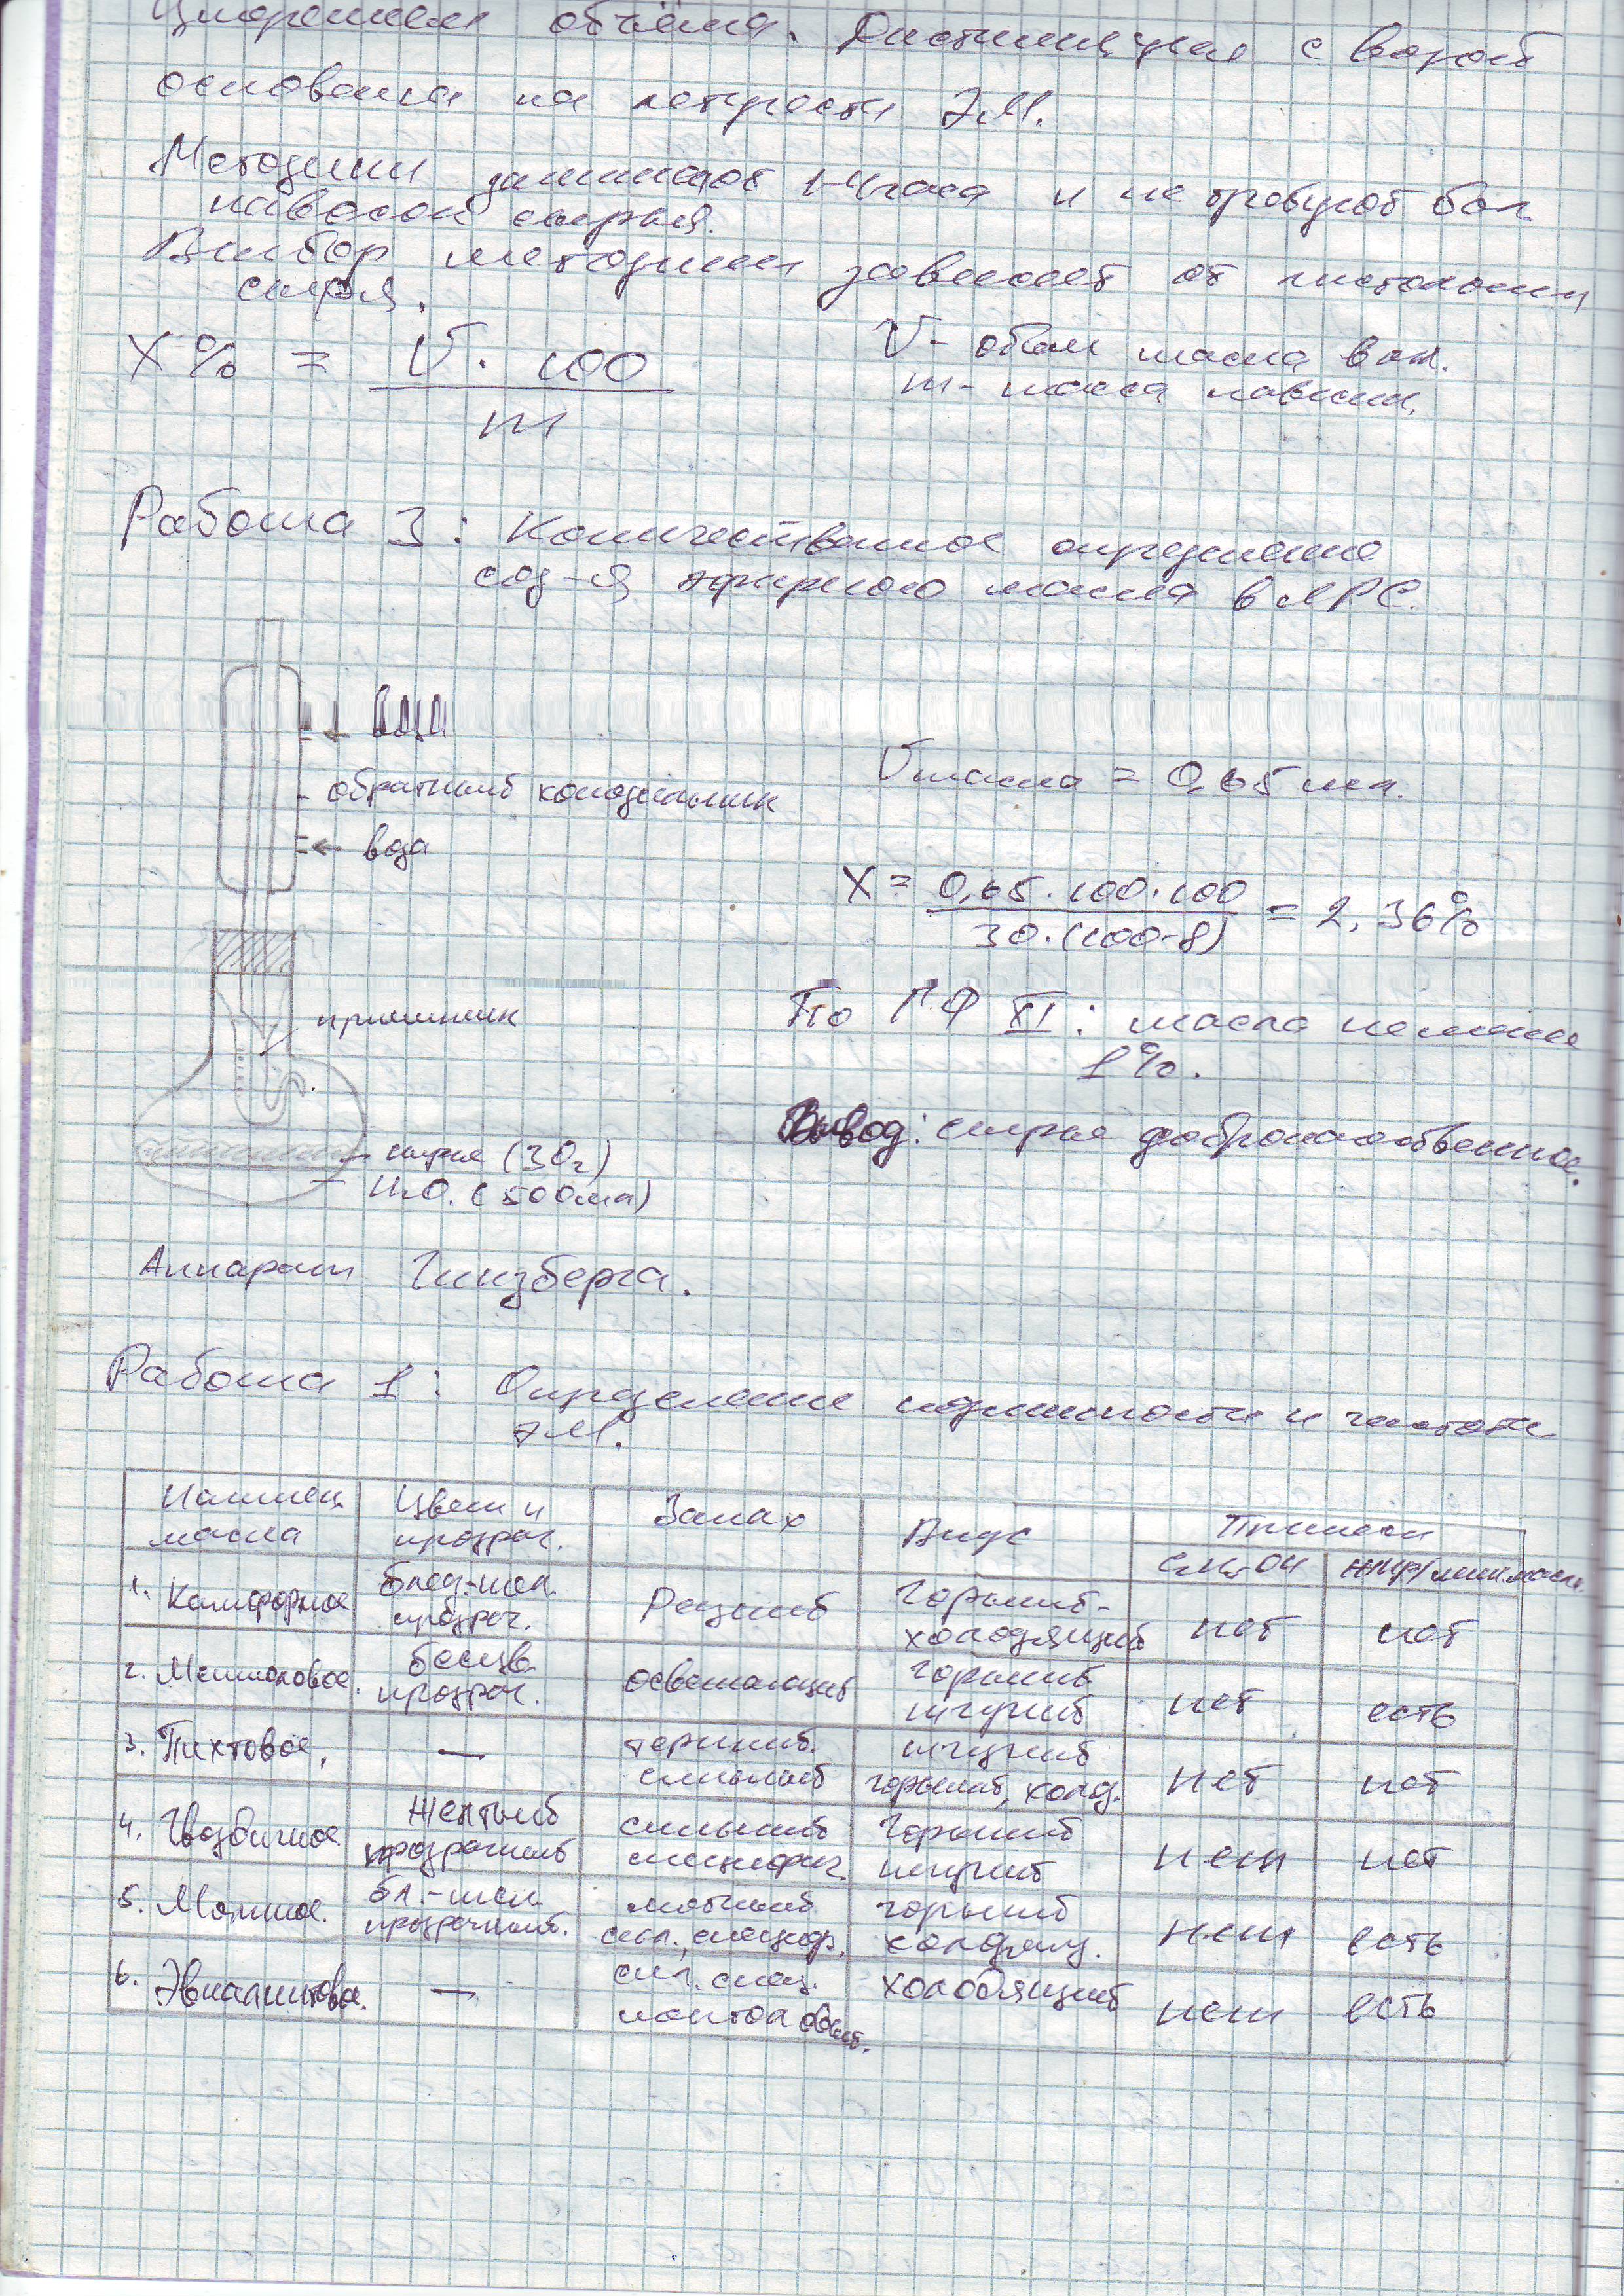 объёма. Дистилляция с водой
основана на летучести Э.М.
Методики занимают 1-4 часа и не требуют бол.
навесок сырья.
Выбор методики зависит от
сырья.
X% = V · 100 / m
V - объём масла в мл.
m - масса навески
Работа 3: Количественное определение
сод-я эфирного масла в ЛРС.
вода
обратный холодильник
вода
приемник
сырье (30г)
H₂O. (500мл)
V масла = 0,65 мл.
X = 0,65·100·100 / 30·(100-8) = 2,36%
По ГФ XI: масла не менее
1%.
Вывод: сырье доброкачественное.
Аппарат Гинзберга.
Работа 1: Определение подлинности и чистоты
Э.М.
Наимен. масла | Цвет и прозрач. | Запах | Вкус | Примеси
C₂H₅OH | жир/мин.масла
1. Камфорное | блед-жел. прозрач. | Резкий | Горький- холодящий | нет | нет
2. Ментоловое. | бесцв. прозрач. | освежающий | горький жгучий | нет | есть
3. Пихтовое, | — | терпкий. сильный | жгучий горький, холод. | нет | нет
4. Гвоздичное. | Желтый прозрачный | сильный специфич. | Горький жгучий | нет | нет
5. Мятное. | бл.-жел. прозрачный. | мятный сил., специф. | горький холодящ. | нет | есть
6. Эвкалиптовое. | — | сил. спец. ментол освеж. | холодящий | нет | есть